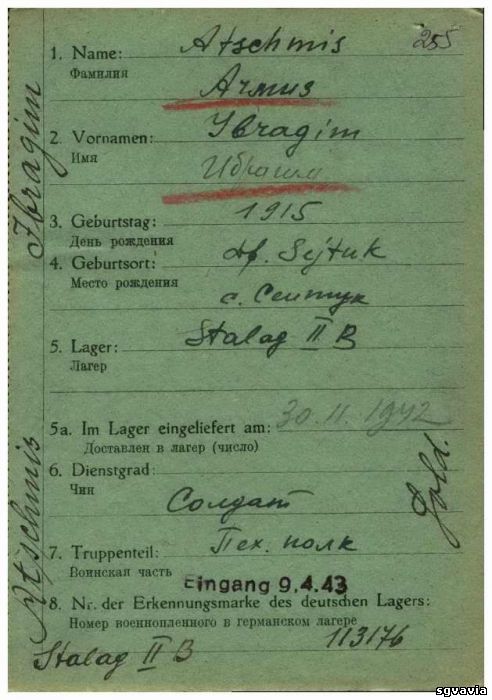 255
1. Name: Atschmis
Фамилия Ачмиз
2. Vornamen: Ibragim
Имя Ибрагим
3. Geburtstag: 1915
День рождения
4. Geburtsort: df. Sejtuk
Место рождения с. Сейтук
5. Lager: Stalag II B
Лагер
5a. Im Lager eingeliefert am: 30.11.1942
Доставлен в лагер (число)
6. Dienstgrad:
Чин Солдат
7. Truppenteil: Пех. полк
Воинская часть
Eingang 9.4.43
8. Nr. der Erkennungsmarke des deutschen Lagers:
Номер военнопленного в германском лагере
113176
Stalag II B
Atschmis Ibragim
Sold.
sgvavia